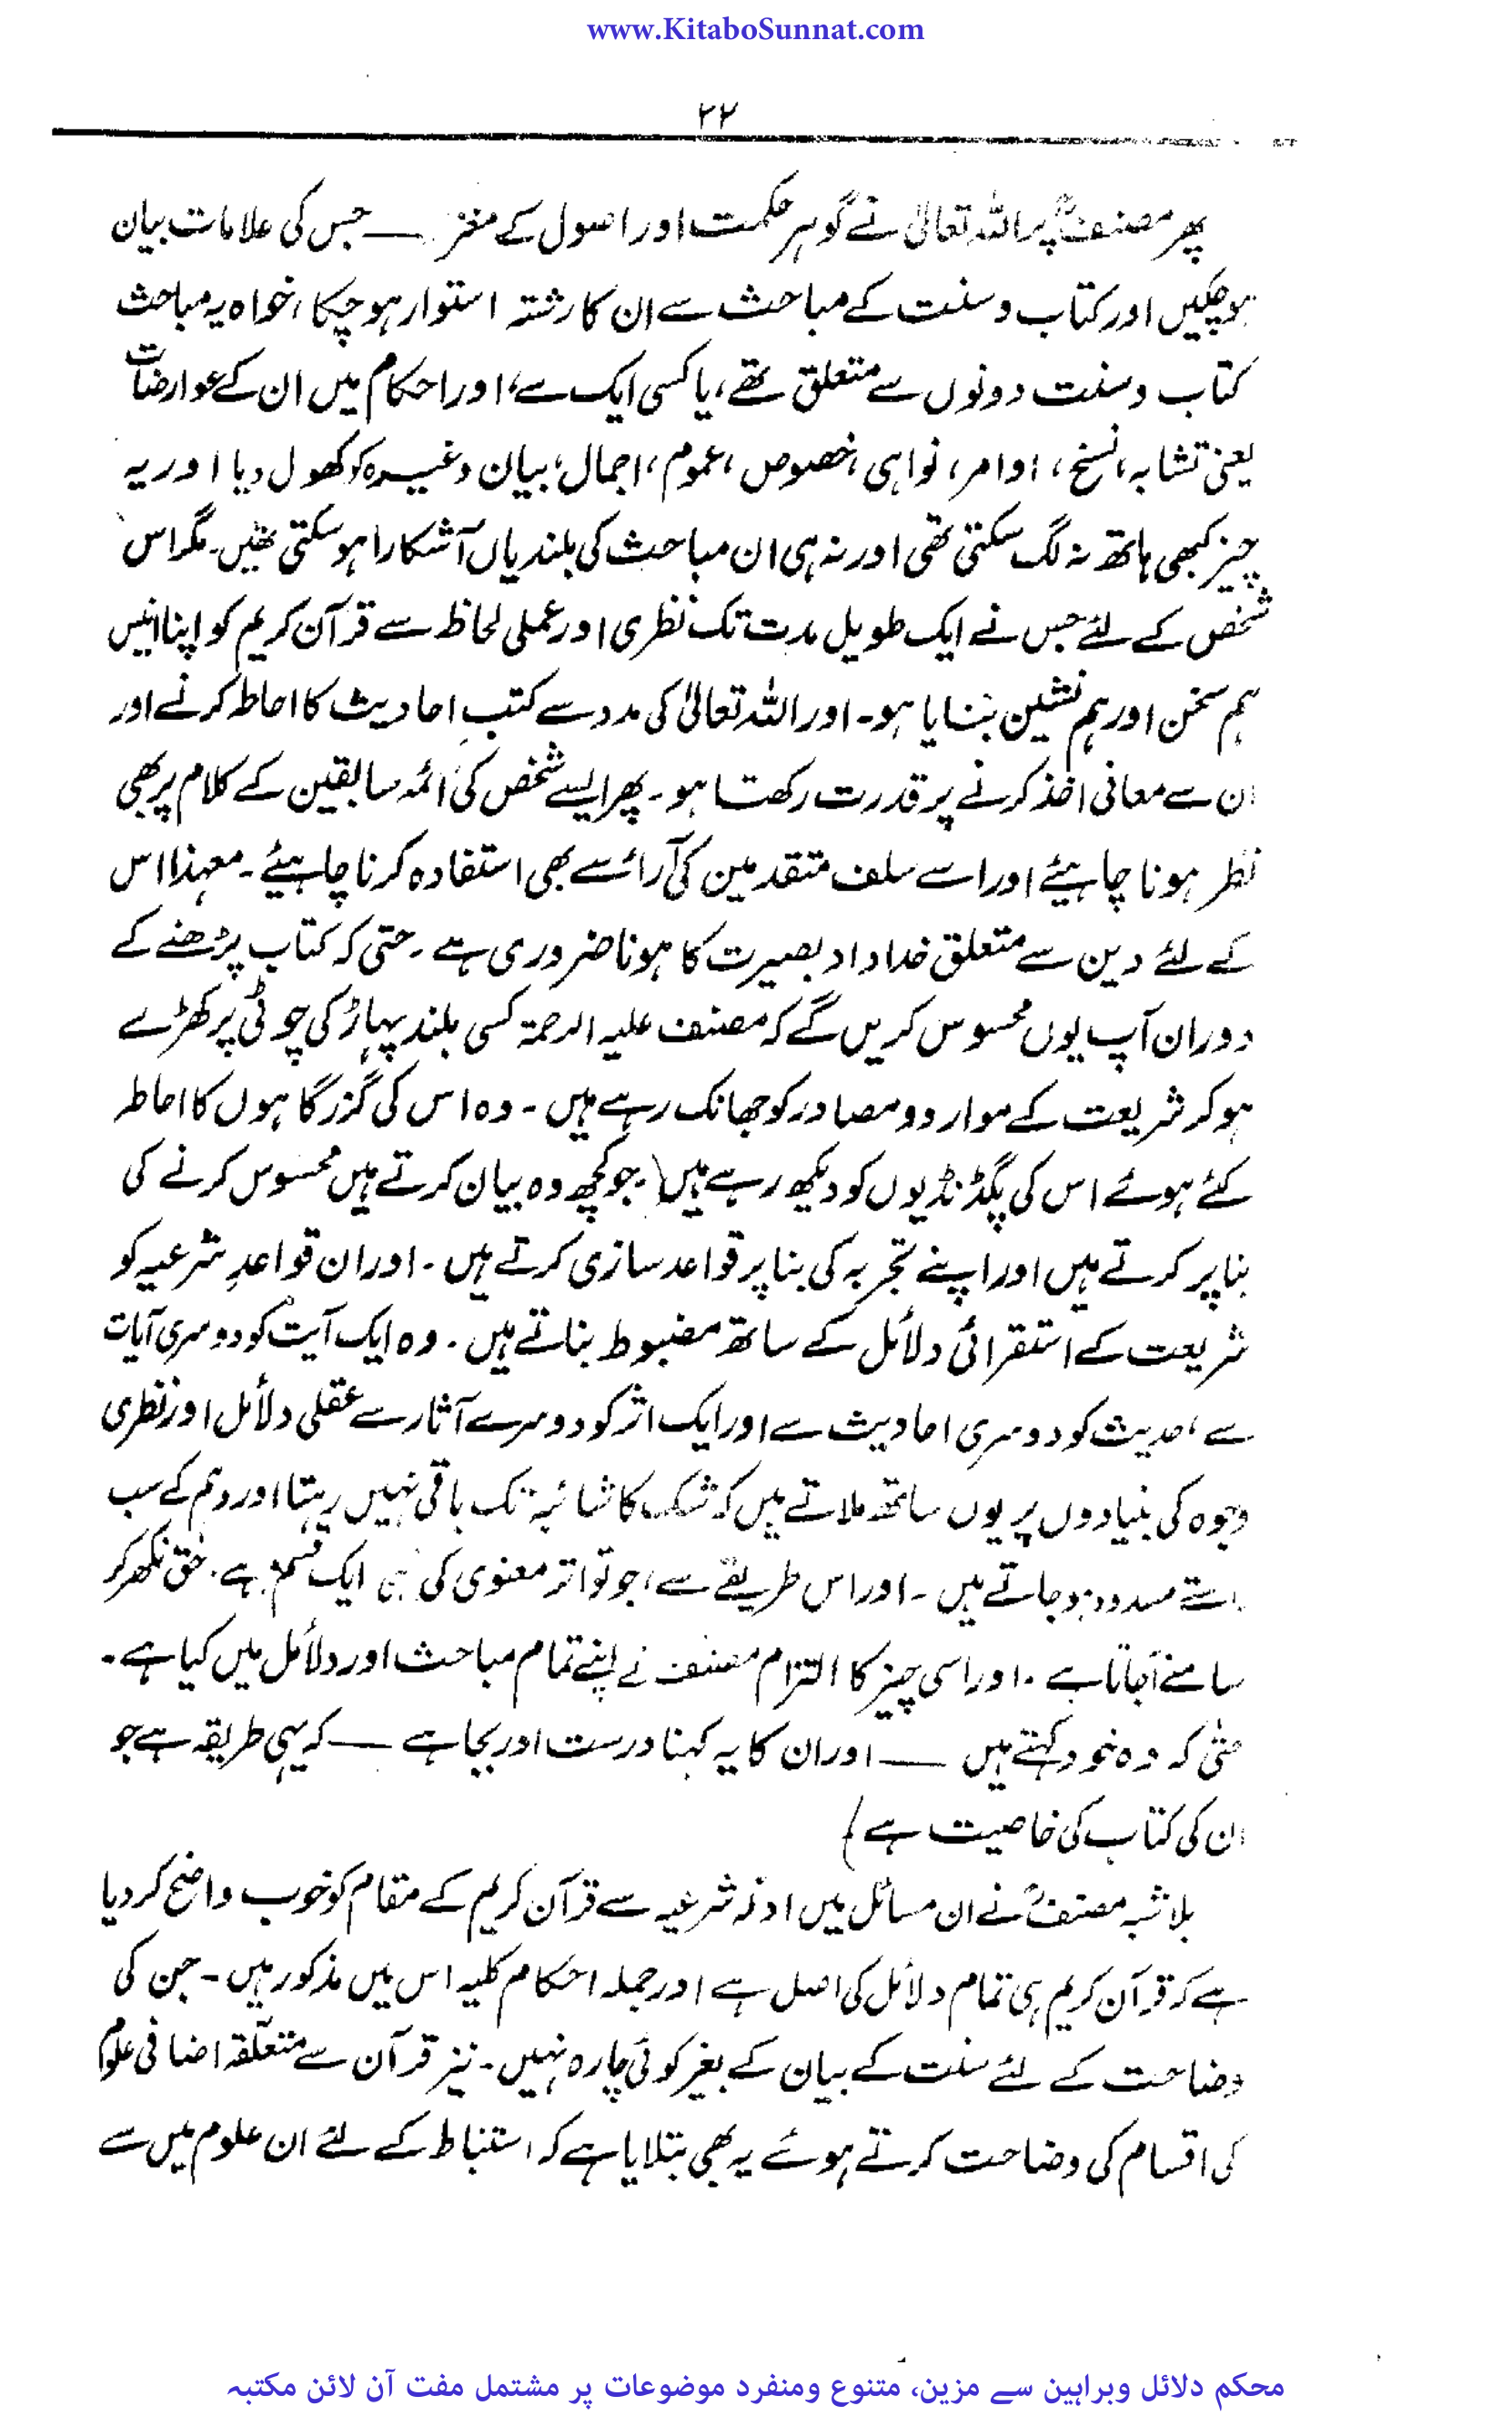 www.KitaboSunnat.com
۲۲
پھر مصنفؒ پر اللہ تعالیٰ نے گوہر حکمت اور اصول کے مغز — جس کی علامات بیان
ہو چکیں اور کتاب و سنت کے مباحث سے ان کا رشتہ استوار ہو چکا، خواہ یہ مباحث
کتاب و سنت دونوں سے متعلق تھے، یا کسی ایک سے، اور احکام میں ان کے عوارضات
یعنی تشابہ، نسخ، اوامر، نواہی، خصوص، عموم، اجمال، بیان وغیرہ کو کھول دیا اور یہ
چیز کبھی ہاتھ نہ لگ سکتی تھی اور نہ ہی ان مباحث کی بلندیاں آشکارا ہو سکتی تھیں۔ مگر اس
شخص کے لئے جس نے ایک طویل مدت تک نظری اور عملی لحاظ سے قرآن کریم کو اپنا انیس
ہم سخن اور ہم نشین بنایا ہو۔ اور اللہ تعالیٰ کی مدد سے کتبِ احادیث کا احاطہ کرنے اور
ان سے معانی اخذ کرنے پر قدرت رکھتا ہو۔ پھر ایسے شخص کی ائمہ سابقین کے کلام پر بھی
نظر ہونا چاہیئے اور اسے سلف متقدمین کی آراء سے بھی استفادہ کرنا چاہیئے۔ معہذا اس
کے لئے دین سے متعلق خداداد بصیرت کا ہونا ضروری ہے۔ حتی کہ کتاب پڑھنے کے
دوران آپ یوں محسوس کریں گے کہ مصنف علیہ الرحمۃ کسی بلند پہاڑ کی چوٹی پر کھڑے
ہو کر شریعت کے موارد و مصادر کو جھانک رہے ہیں۔ وہ اس کی گزرگاہوں کا احاطہ
کئے ہوئے اس کی پگڈنڈیوں کو دیکھ رہے ہیں (جو کچھ وہ بیان کرتے ہیں محسوس کرنے کی
بنا پر کرتے ہیں اور اپنے تجربہ کی بنا پر قواعد سازی کرتے ہیں۔ اور ان قواعدِ شرعیہ کو
شریعت کے استقرائی دلائل کے ساتھ مضبوط بناتے ہیں۔ وہ ایک آیت کو دوسری آیات
سے، حدیث کو دوسری احادیث سے اور ایک اثر کو دوسرے آثار سے عقلی دلائل اور نظری
وجوہ کی بنیادوں پر یوں ساتھ ملاتے ہیں کہ شک کا شائبہ تک باقی نہیں رہتا اور وہم کے سب
راستے مسدود ہو جاتے ہیں۔ اور اس طریقے سے، جو تواتر معنوی کی ہی ایک قسم ہے۔ حق نکھر کر
سامنے آجاتا ہے۔ اور اسی چیز کا التزام مصنف نے اپنے تمام مباحث اور دلائل میں کیا ہے۔
حتیٰ کہ وہ خود کہتے ہیں — اور ان کا یہ کہنا درست اور بجا ہے — کہ یہی طریقہ ہے جو
ان کی کتاب کی خاصیت ہے)
بلاشبہ مصنفؒ نے ان مسائل میں ادلۂ شرعیہ سے قرآن کریم کے مقام کو خوب واضح کر دیا
ہے کہ قرآن کریم ہی تمام دلائل کی اصل ہے اور جملہ احکام کلیہ اس میں مذکور ہیں۔ جن کی
وضاحت کے لئے سنت کے بیان کے بغیر کوئی چارہ نہیں۔ نیز قرآن سے متعلّقہ اضافی علوم
کی اقسام کی وضاحت کرتے ہوئے یہ بھی بتلایا ہے کہ استنباط کے لئے ان علوم میں سے
محکم دلائل وبراہین سے مزین، متنوع ومنفرد موضوعات پر مشتمل مفت آن لائن مکتبہ